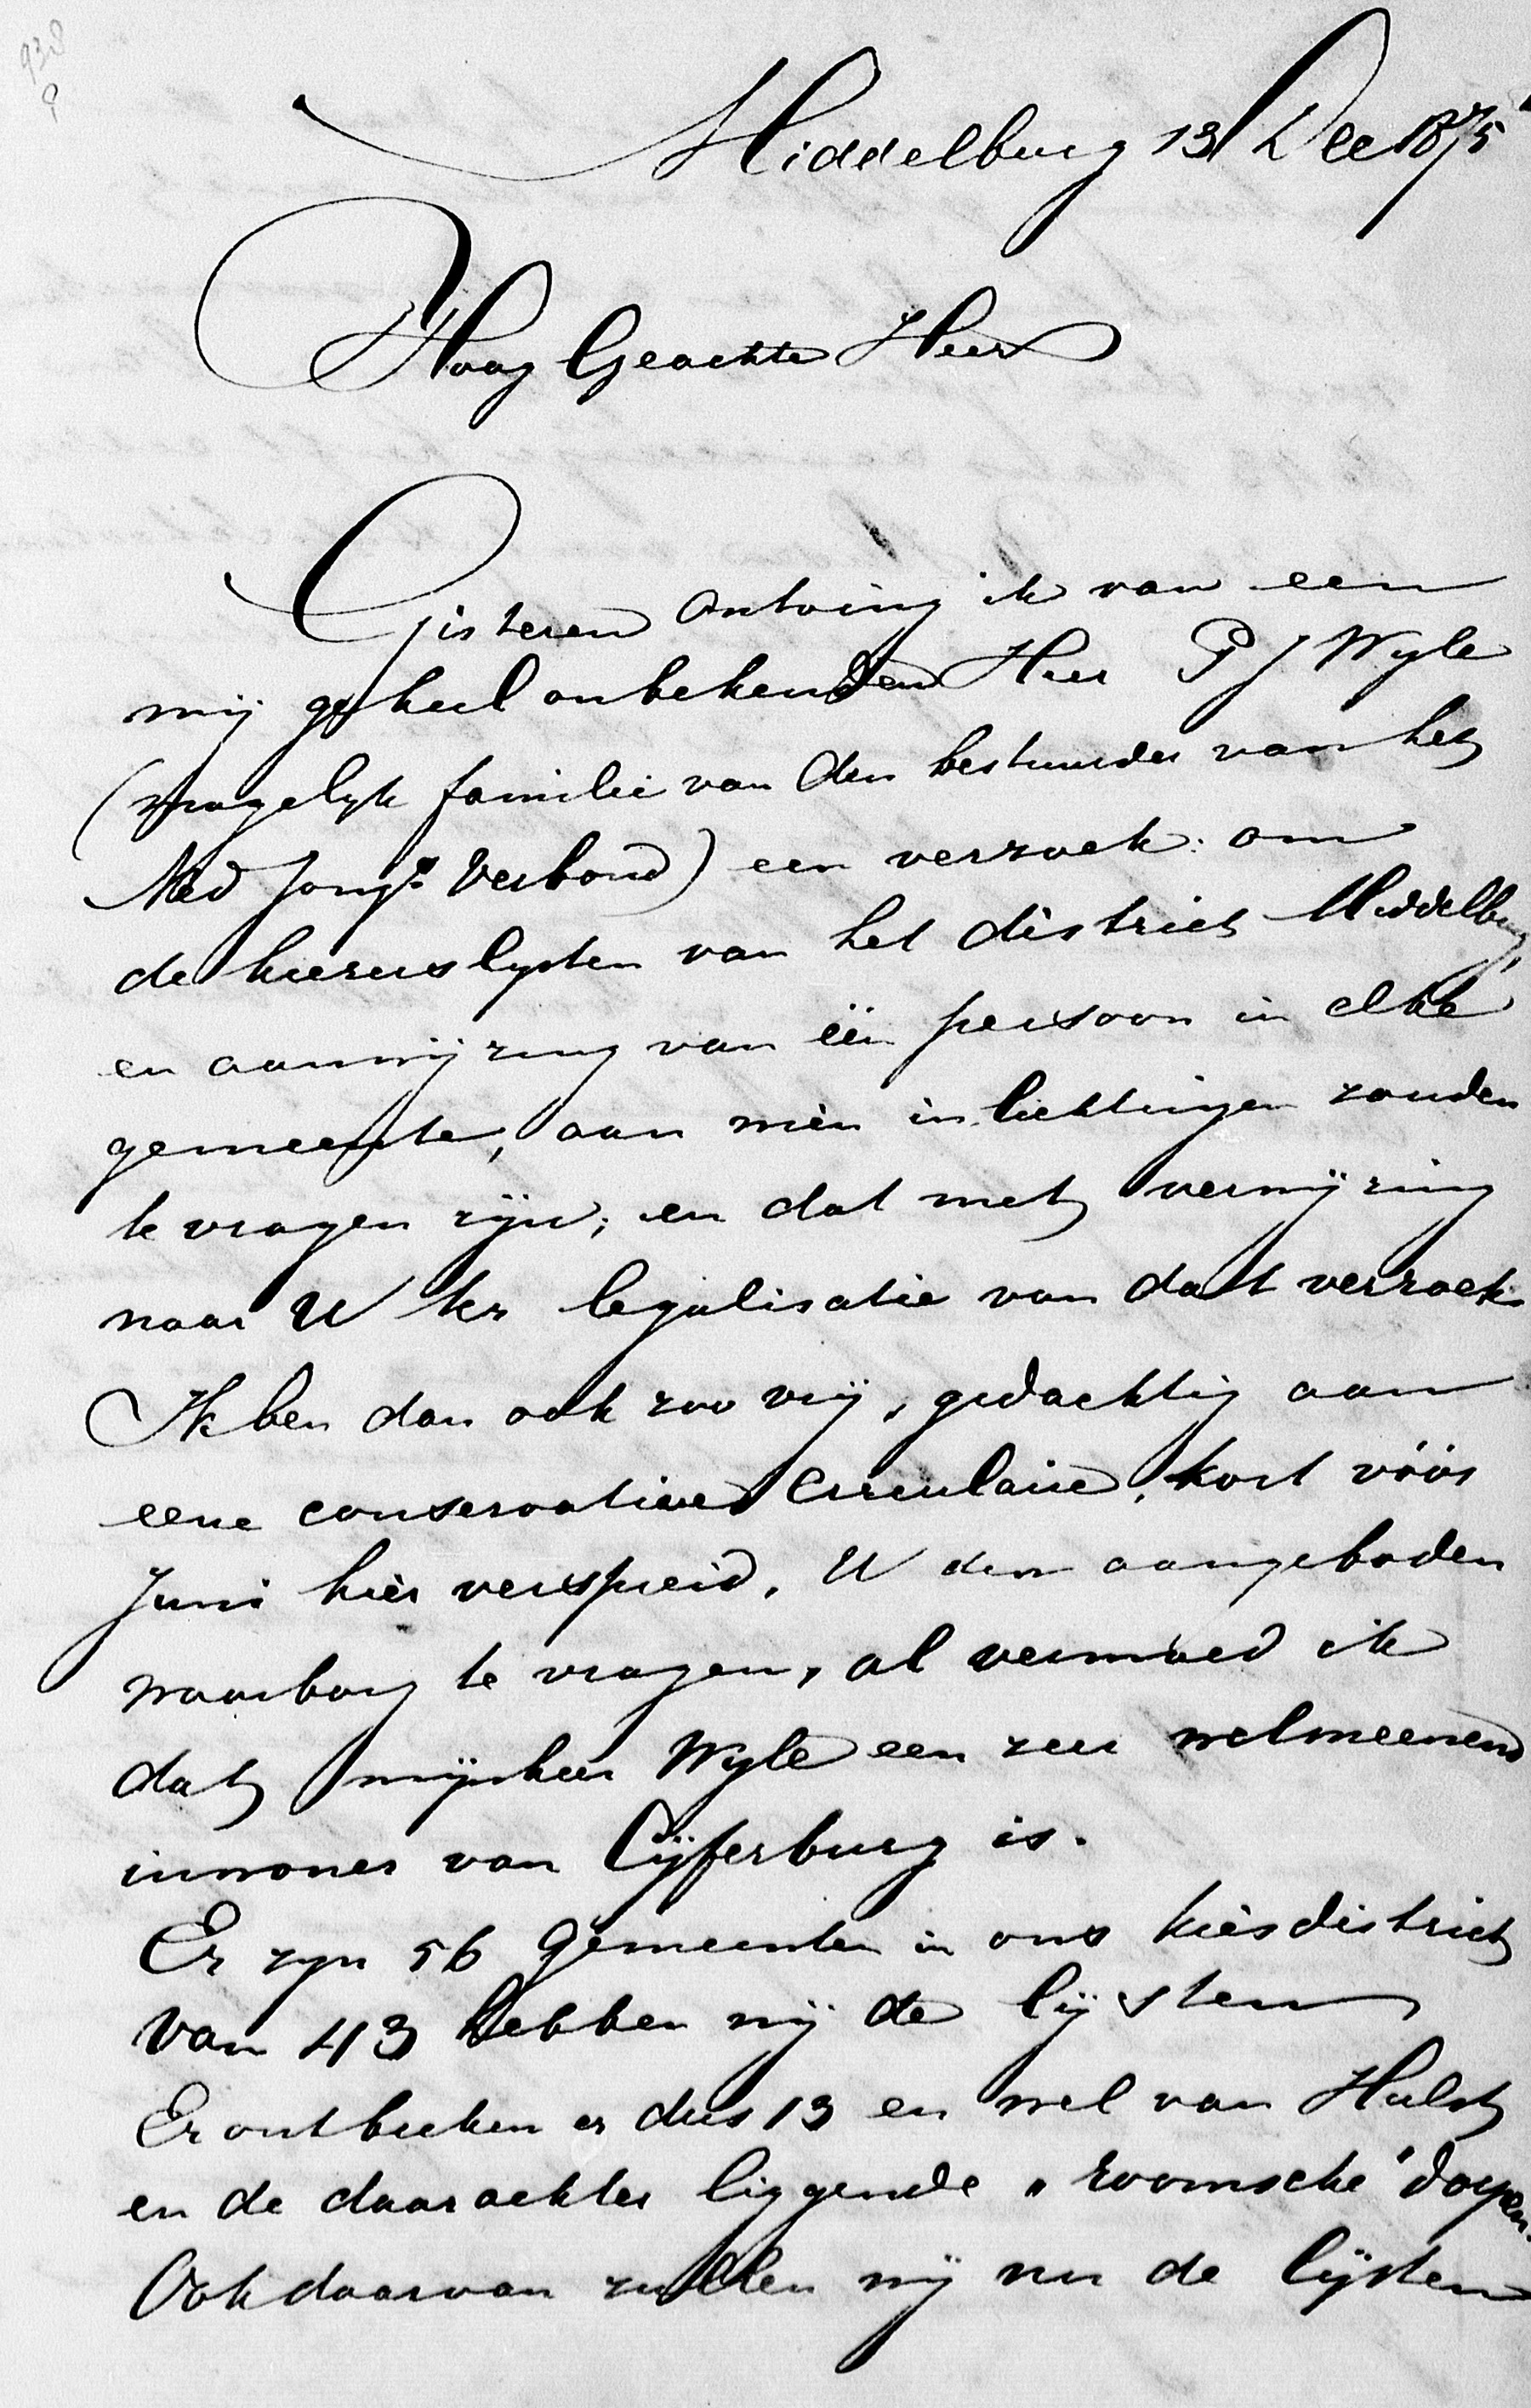 938
Middelburg 13 Dec 1875
Hoog Geachte Heer
Gisteren ontving ik van een
mij geheel onbekenden Heer P J Wyle
(mogelyk familie van den bestuurder van het
Ned Jong: Verbond) een verzoek: om
de kiezerslysten van het district Middelburg,
en aanwijzing van één persoon in elke
gemeente, aan wien inlichtingen zouden
te vragen zijn; en dat met verwijzing
naar U ter legalisatie van dat verzoek
Ik ben dan ook zoo vrij, gedachtig aan
eene conservatieve Circulaire, kort vóór
Juni hier verspreid, U den aangeboden
waarborg te vragen, al vermoed ik
dat mijnheer Wyle een zeer welmeenend
inwoner van Cijferburg is.
Er zyn 56 Gemeenten in ons kiesdistrict
Van 43 hebben wij de lijsten
Er ontbreken er dus 13 en wel van Hulst
en de daarachter liggende "roomsche" dorpen.
Ook daarvan zullen wij nu de lijsten